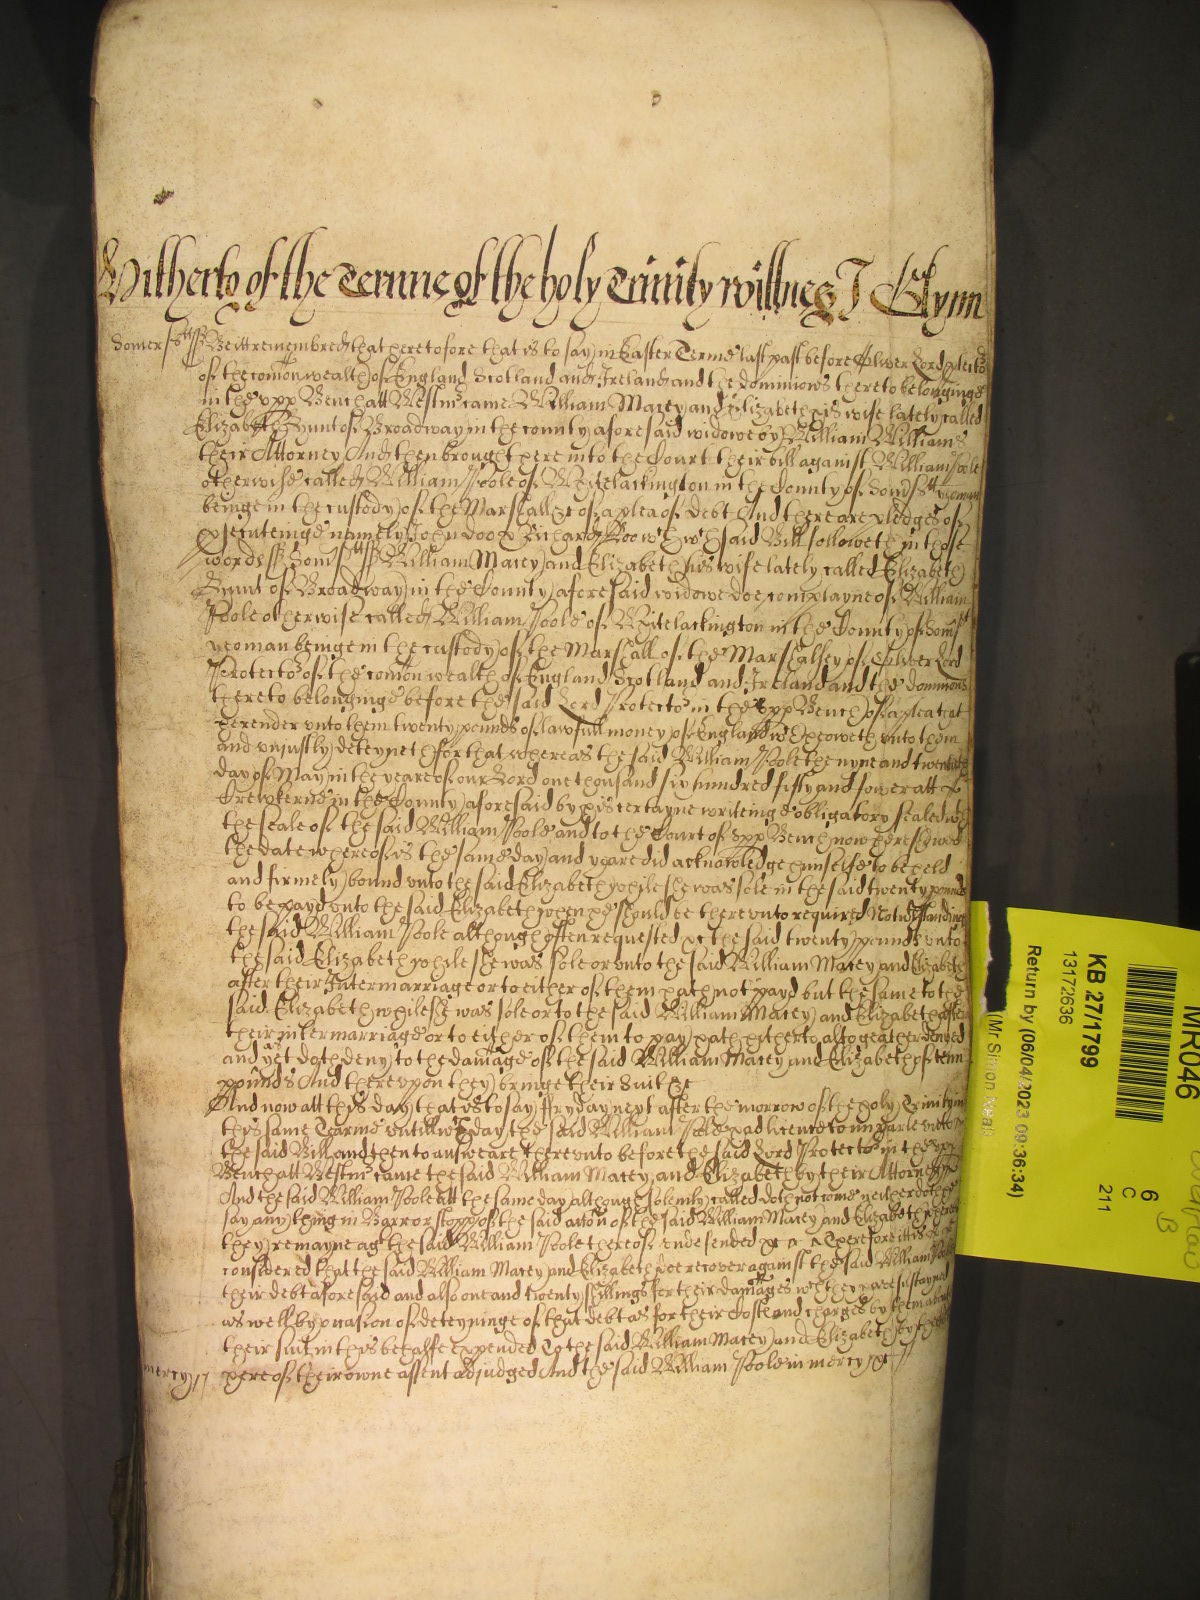 Hitherto of the Terme of the holy Trinity wittnes J Glynn
Somersett ss Be itt remembred that heretofore that is to say in Easter Terme last past before Oliver Lord Protector
of the comon wealth of England Scotland and Ireland and the dominions thereto belonginge
in the upp Bench att Westmr came William Macey and Elizabeth his wife lately called
Elizabeth Bunt of Broadway in the county aforesaid widowe by William Williams
their Attorney And then brought here into the Court their bill against William Poole
otherwise called William Poole of Witelackington in the County of Somsett yeoman
beinge in the custody of the Marshall &c of a plea of debt And there are pledges of
psecuteinge namely John Doo & Richard Roo wch said Bill followeth in these
words ss Somsett ss William Macey and Elizabeth his wife lately called Elizabeth
Bunt of Broadway in the County aforesaid widowe doe complayne of William
Poole otherwise called William Poole of Witelackington in the County of Somsett
yeoman beinge in the custody of the Marshall of the Marshalsey of Oliver Lord
Protector of the comon wealth of England Scotland and Ireland and the dominions
thereto belonginge before the said Lord Protector in the upp Bench of a plea that
he render unto them twenty pounds of lawfull money of England wch he oweth unto them
and uniustly deteyneth for that whereas the said William Poole the nyne and twentith
day of May in the yeare of our Lord one thousand six hundred fifty and fower att
Crewkerne in the County aforesaid by his certayne writeinge obligatory sealed with
the seale of the said William Poole and to the Court of upp Bench now here shewed
the date whereof is the same day and yeare did acknowledge himselfe to be held
and firmely bound unto the said Elizabeth while she was sole in the said twenty pounds
to be payd unto the said Elizabeth when he should be thereunto required Notwthstanding
the said William Poole although often requested &c the said twenty pounds unto
the said Elizabeth while she was sole or unto the said William Macey and Elizabeth
after their Intermarriage or to either of them hath not payd but the same to the
said Elizabeth while she was sole or to the said William Macey and Elizabeth after
their intermarriage or to either of them to pay hath hitherto altogeather denyed
and yet doth deny to the damage of the said William Macey and Elizabeth of tenn
pounds And thereupon they bringe their Suit &c
And now att this day that is to say ffryday next after the morrow of the holy Trinity in
this same Tearme untill wch day the said William Poole had licence to imparle unto
the said Bill and then to answeare thereunto before the said Lord Protector in the upp
Bench att Westmr came the said William Macey and Elizabeth by their Attorney
And the said William Poole att the same day although solemly called doth not come neither doth he
say any thing in Barr or stopp of the said acton of the said William Macey and Elizabeth whereby
they remayne agt the said William Poole thereof undefended &c Therefore itt is
considered that the said William Macey and Elizabeth doe recover against the said William Poole
their debt aforesaid and also one and twenty shillings for their damages wch they have susteyned
as well by occasion of deteyninge of that debt as for their Costs and charges by them about
their suit in this behalfe expended To the said William Macey and Elizabeth by the Court
mercy here of their owne assent adjudged And the said William Poole in mercy &c
MR046
KB 27/1799
13172636
Return by (06/04/2023 09:36:34)
(Mr Simon Neal)
6
C
211